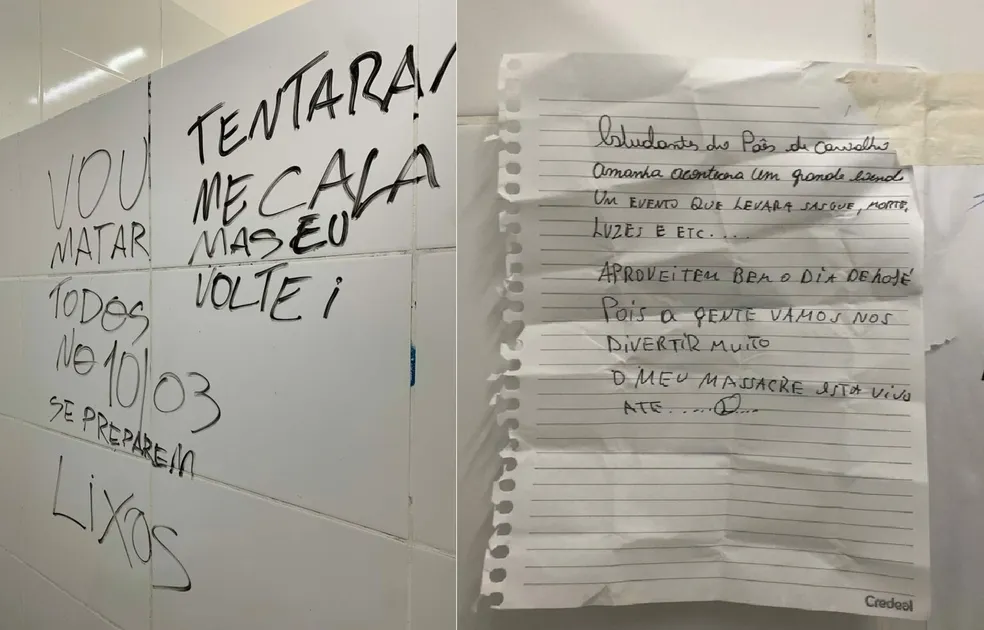 VOU
MATAR
TODOS
NO 10/03
SE PREPAREM
LIXOS
TENTARAM
ME CALA
MAS EU
VOLTEI
Estudantes do Paes de Carvalho
amanha acontecera um grande
UM EVENTO QUE LEVARA SASGUE, MORTE,
LUZES E ETC....
APROVEITEM BEM O DIA DE HOJE
POIS A GENTE VAMOS NOS
DIVERTIR MUITO
O MEU MASSACRE ESTA VIVO
ATE
Credeal